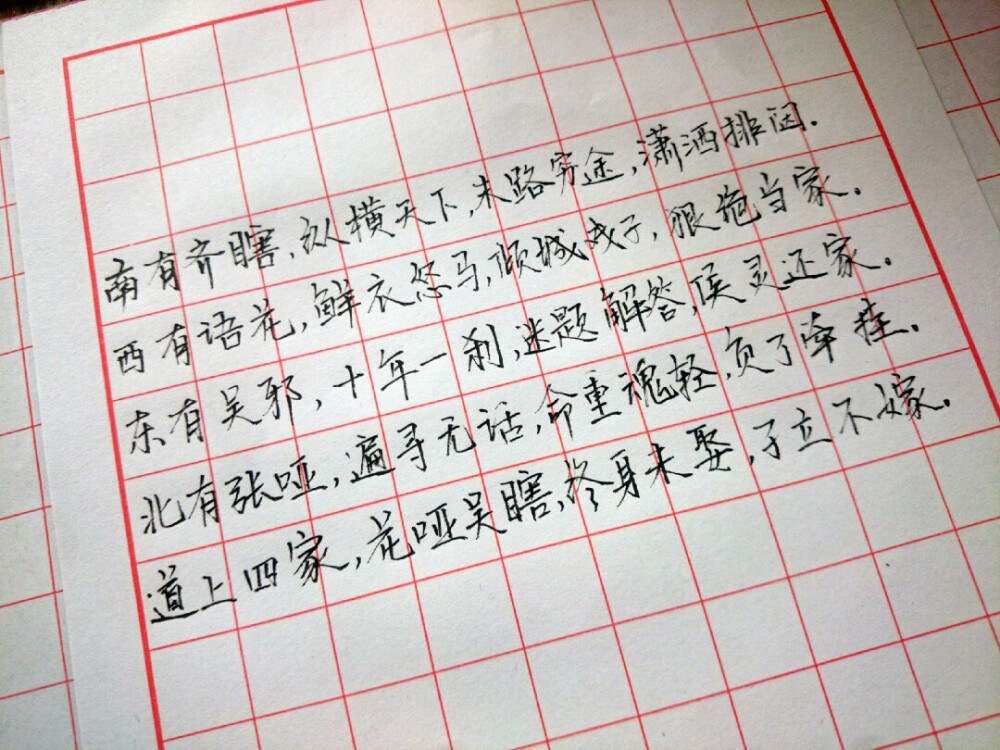 南有齐瞎,纵横天下,末路穷途,潇洒排闼.
西有语花,鲜衣怒马,倾城戏子,狠绝当家.
东有吴邪,十年一刹,迷题解答,侯灵还家.
北有张哑,遍寻无话,命重魂轻,负了牵挂.
道上四家,花哑吴瞎,终身未娶,孑立不嫁.